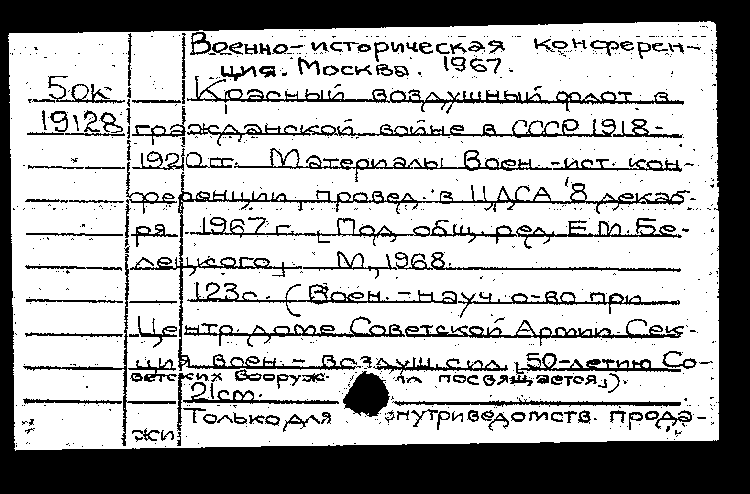 Военно-историческая конферен-
ция. Москва. 1967.
50к Красный воздушный флот в
19128 гражданской войне в СССР 1918-
1920 гг. Материалы Воен.-ист. кон-
ференции, провед. в ЦДСА 8 декаб-
ря 1967 г. [Под общ. ред. Е.М. Бе-
лецкого]. М., 1968.
123с. (Воен.-науч. о-во при
Центр. доме Советской Армии. Сек-
ция воен.-воздуш. сил. [50-летию Со-
ветских Вооруж. посвящается]).
21см.
Только для внутриведомств. прода-
жи